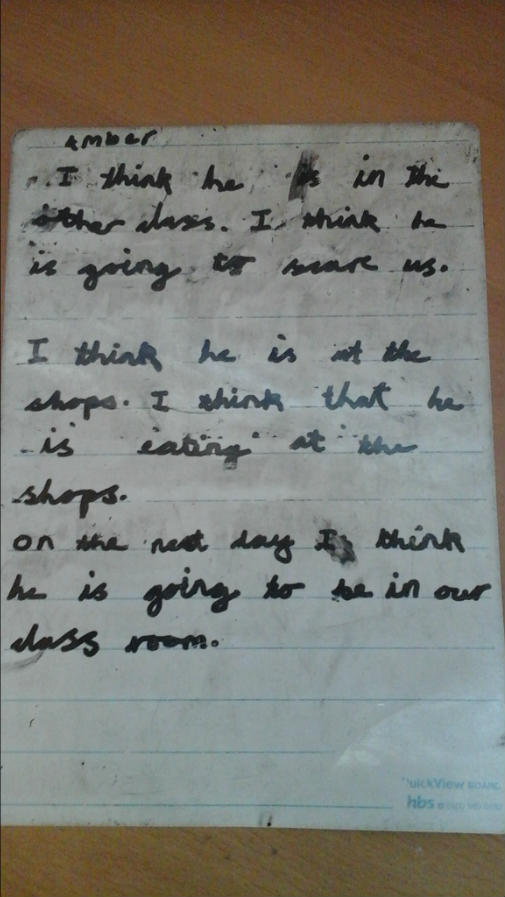 Amber
I think he is in the
other class. I think he
is going to scare us.
I think he is at the
shops. I think that he
is eating at the
shops.
on the next day I think
he is going to be in our
class room.
uickView BOARD
hbs